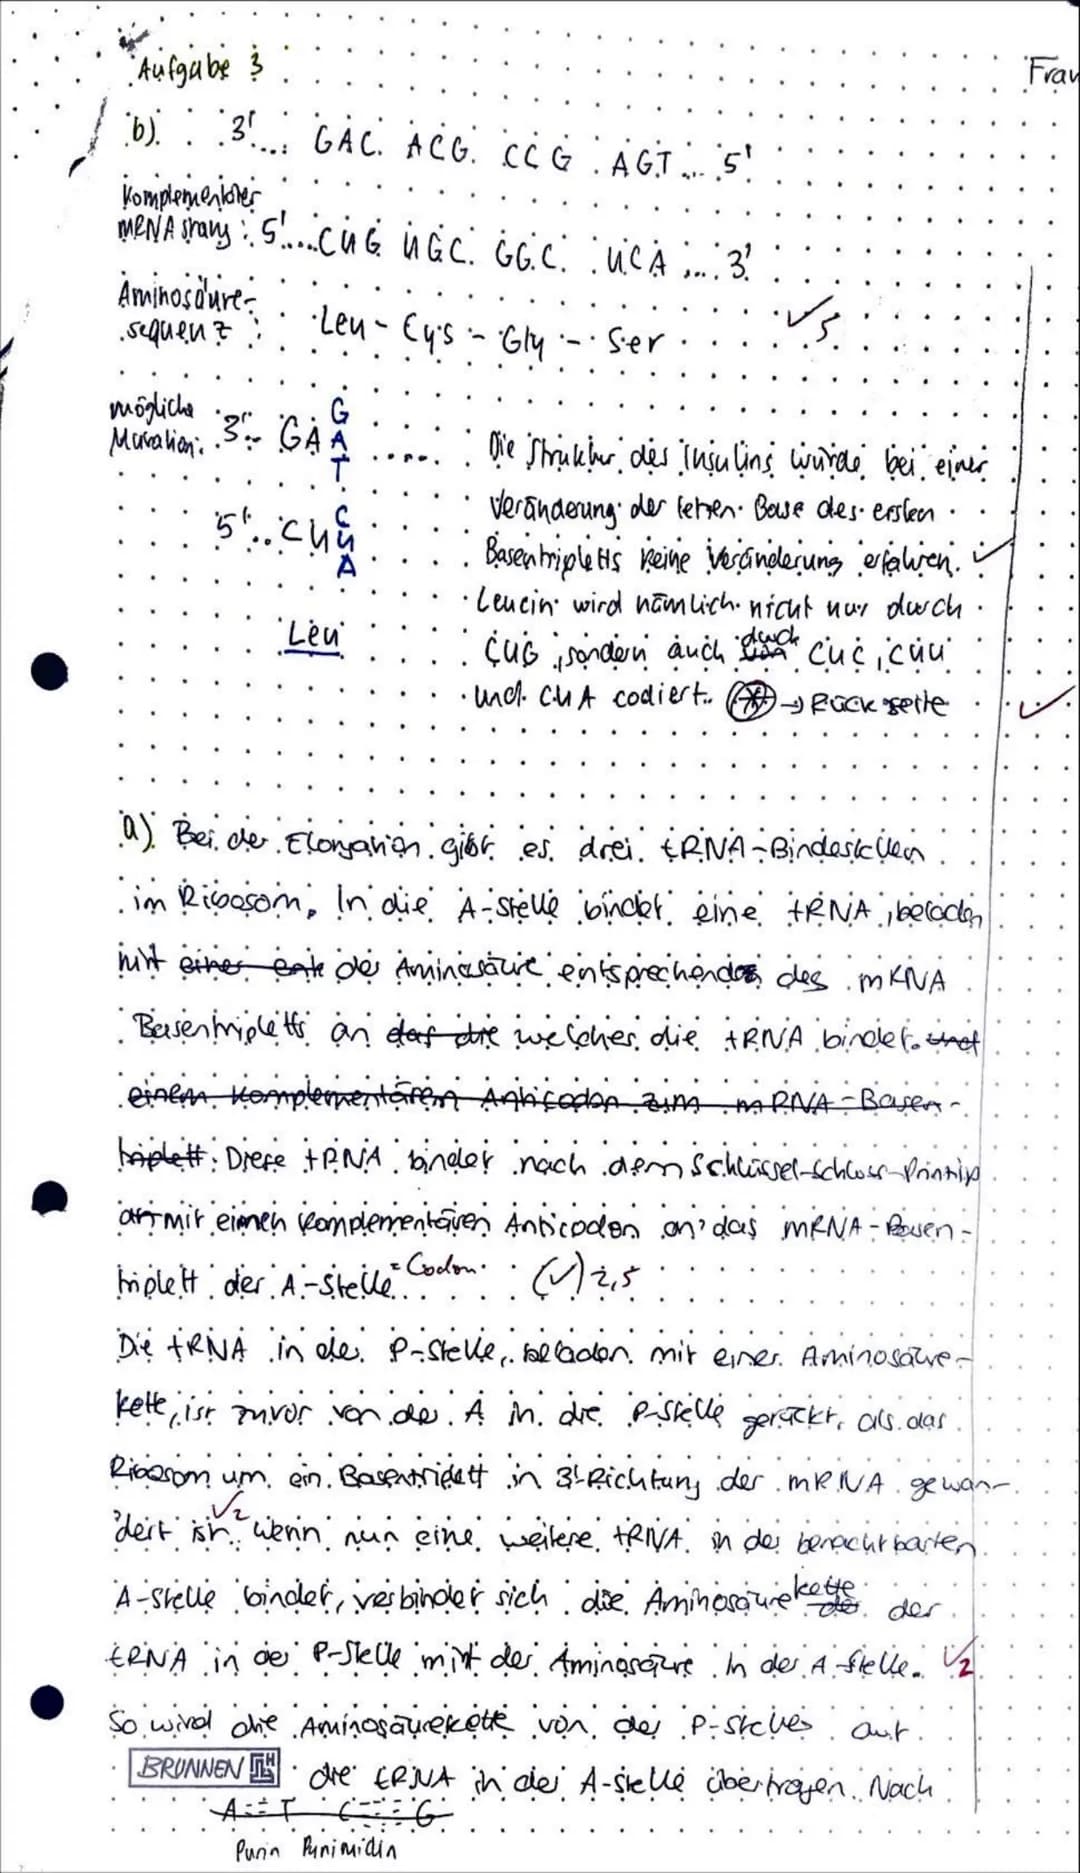 Aufgabe 3
Frau
b) 3'.... GAC ACG CCG AGT ... 5'
Komplementärer
mRNA strang: 5'.....CUG UGC GGC UCA .... 3'
Aminosäure-
sequenz: Leu - Cys - Gly - Ser ✓5
mögliche
Mutation: 3'- GA G
A
T .....
5'.. CU C
U
A
Leu
Die Struktur des Insulins würde bei einer
Veränderung der letzten Base des ersten
Basentripletts keine Veränderung erfahren. ✓
Leucin wird nämlich nicht nur durch
CUG, sondern auch durch CUC, CUU
und CUA codiert. (*) → Rückseite ✓
a) Bei der Elongation gibt es drei tRNA-Bindestellen
im Ribosom. In die A-Stelle bindet eine tRNA, beladen
mit einer der Aminosäure entsprechend des mRNA
Basentripletts an das die welches die tRNA bindet. und
einem komplementären Anticodon zum mRNA-Basen-
triplett. Diese tRNA bindet nach dem Schlüssel-Schloss-Prinzip
mit einen komplementären Anticodon an das mRNA-Basen-
triplett der A-Stelle. = Codon (✓) 2,5
Die tRNA in der P-Stelle, beladen mit einer Aminosäure-
kette, ist zuvor von der A in die P-Stelle gerückt, als das
Ribosom um ein Basentriplett in 3'-Richtung der mRNA gewan-
dert ist. ✓2 Wenn nun eine weitere tRNA in der benachbarten
A-Stelle bindet, verbindet sich die Aminosäurekette der
tRNA in der P-Stelle mit der Aminosäure in der A-Stelle. ✓2
So wird die Aminosäurekette von der P-Stelle auf
BRUNNEN die tRNA in der A-Stelle übertragen. Nach
A=T C≡G
Purin Pyrimidin